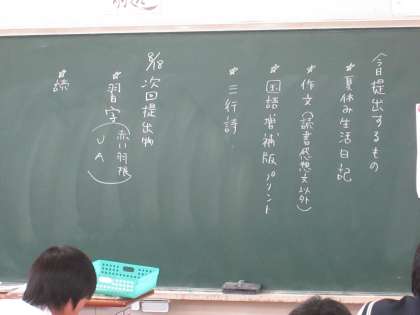 今日提出するもの
*夏休み生活日記
*作文(読書感想文以外)
*国語増補版プリント
*三行詩
8/18 次回提出物
*習字(赤い羽根 JA)
*読